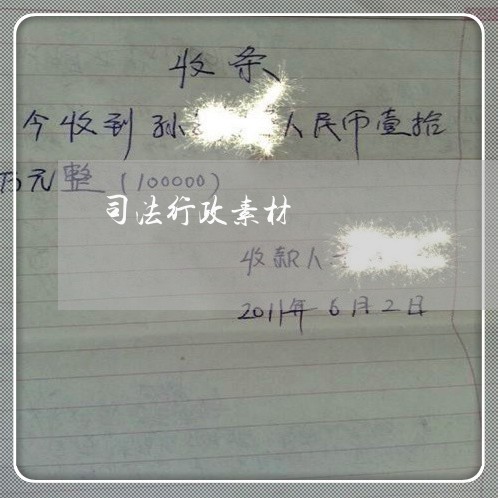 收条
今收到孙 人民币壹拾
万元整（100000）
司法行政素材
收款人
2011年6月2日